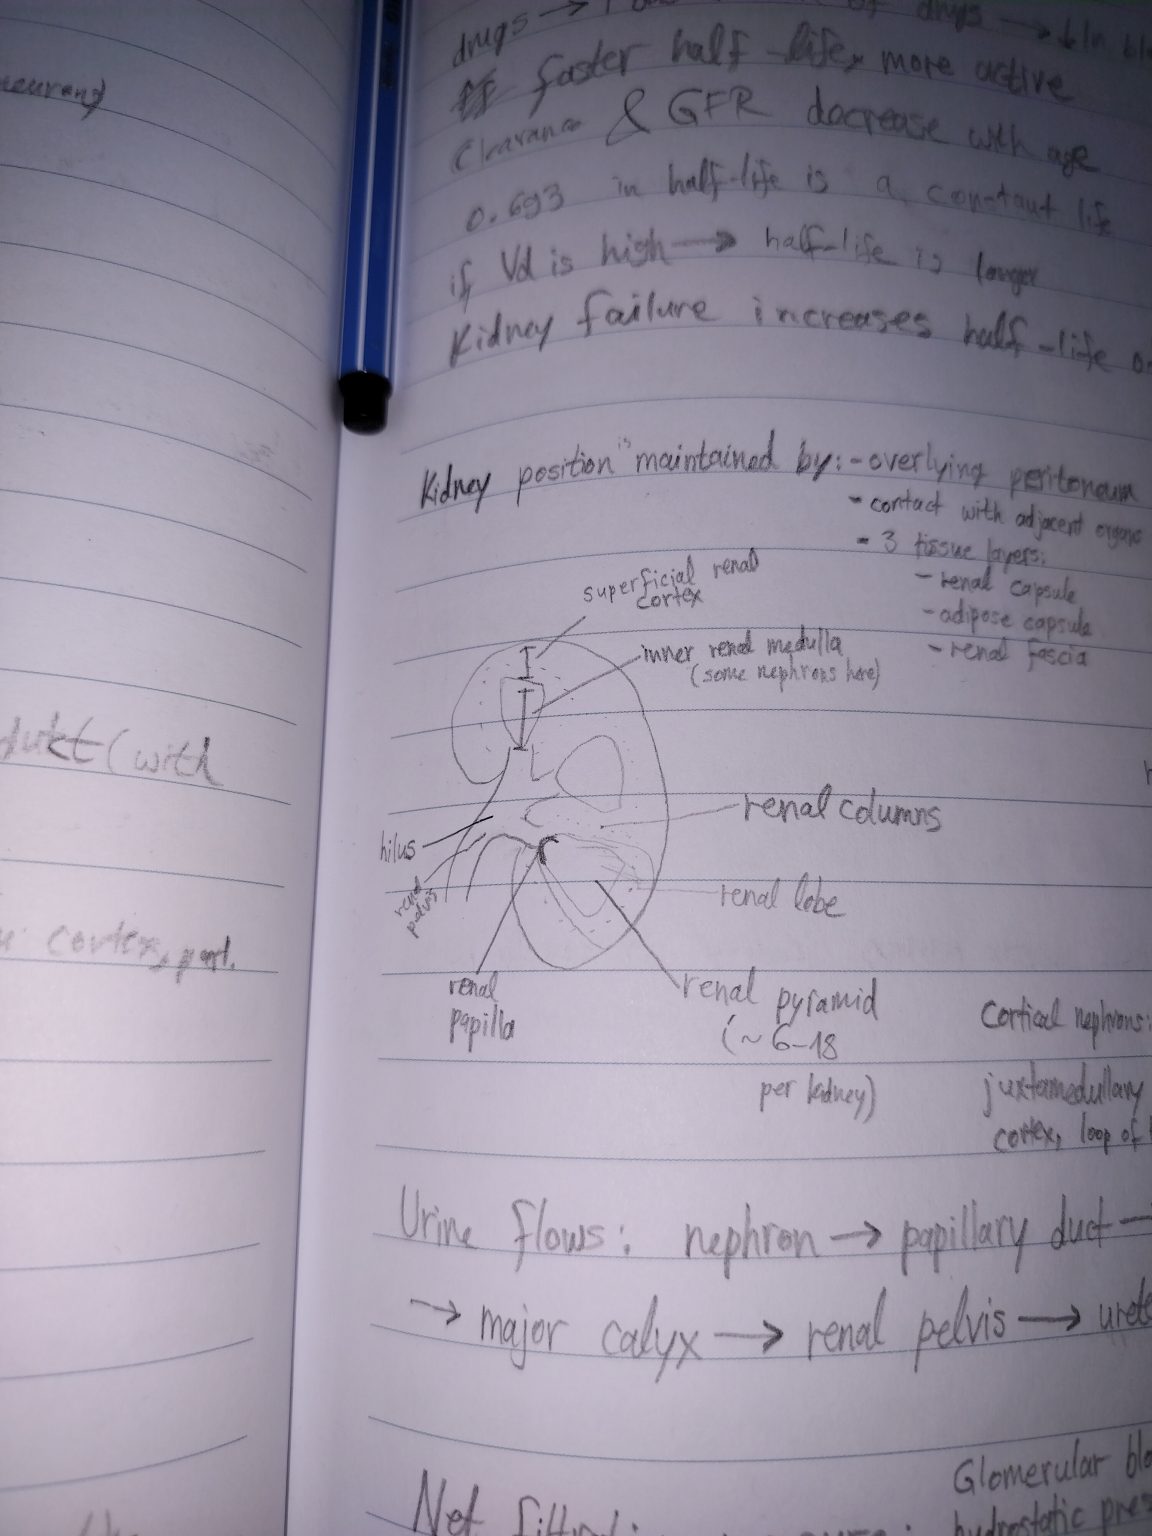 neurons)
dukt (with
cortex, part.
drugs → of drugs →
faster half-life, more active
Clearance & GFR decrease with age
0.693 in half-life is a constant life
if Vd is high → half-life is longer
Kidney failure increases half-life
Kidney position is maintained by: - overlying peritoneum
- contact with adjacent organs
- 3 tissue layers:
- renal capsule
- adipose capsule
- renal fascia
superficial renal
cortex
inner renal medulla
(some nephrons here)
renal columns
hilus
renal
pelvis
renal lobe
renal
papilla
renal pyramid
(~6-18
per kidney)
Cortical nephrons:
juxtamedullary
cortex, loop of
Urine flows: nephron → papillary duct →
→ major calyx → renal pelvis →
Glomerular
Net
hydrostatic